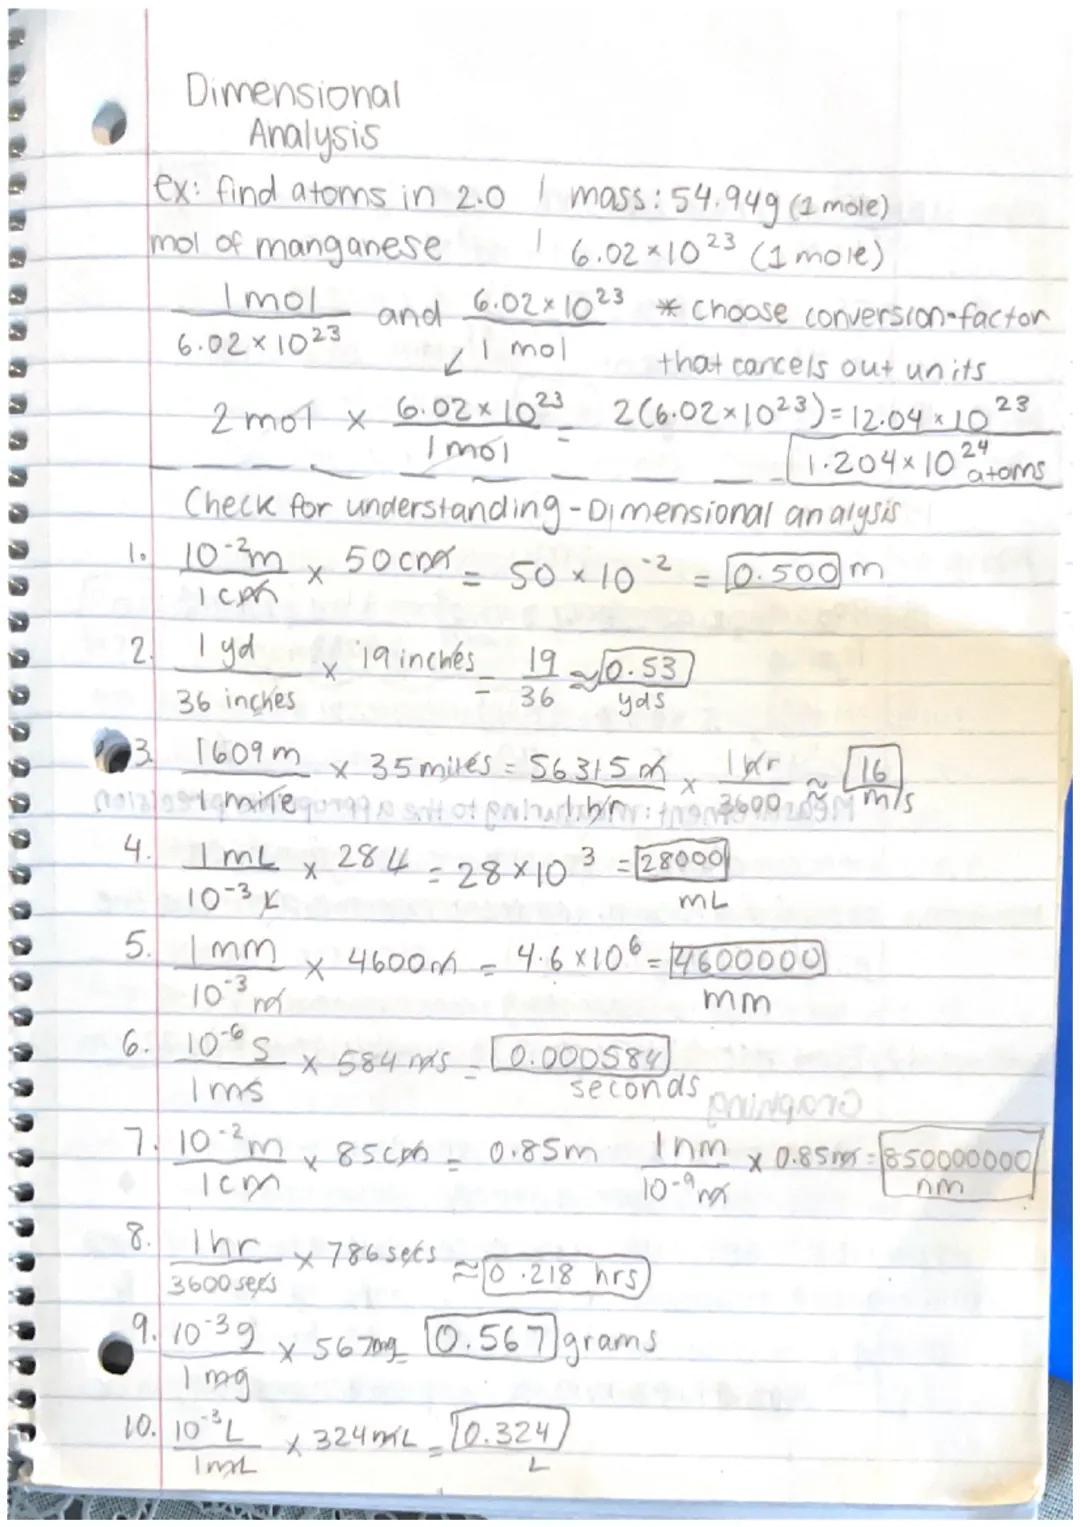 Dimensional
Analysis
ex: find atoms in 2.0 | mass: 54.94g (1 mole)
mol of manganese | 6.02×10^23 (1 mole)
1 mol / 6.02×10^23 and 6.02×10^23 / 1 mol * choose conversion-factor
that cancels out units
2 mol × 6.02×10^23 / 1 mol = 2(6.02×10^23) = 12.04×10^23
1.204×10^24 atoms
Check for understanding - Dimensional analysis
1. 10^-2 m / 1 cm × 50 cm = 50×10^-2 = 0.500 m
2. 1 yd / 36 inches × 19 inches = 19/36 ≈ 0.53 yds
3. 1609 m / 1 mile × 35 miles = 56315 m / 1 hr × 1 hr / 3600 ≈ 16 m/s
4. 1 mL / 10^-3 L × 28 L = 28×10^3 = 28000 mL
5. 1 mm / 10^-3 m × 4600 m = 4.6×10^6 = 4600000 mm
6. 10^-6 s / 1 ms × 584 ms = 0.000584 seconds
7. 10^-2 m / 1 cm × 85 cm = 0.85 m 1 nm / 10^-9 m × 0.85 m = 850000000 nm
8. 1 hr / 3600 secs × 786 secs ≈ 0.218 hrs
9. 10^-3 g / 1 mg × 567 mg = 0.567 grams
10. 10^-3 L / 1 mL × 324 mL = 0.324 L